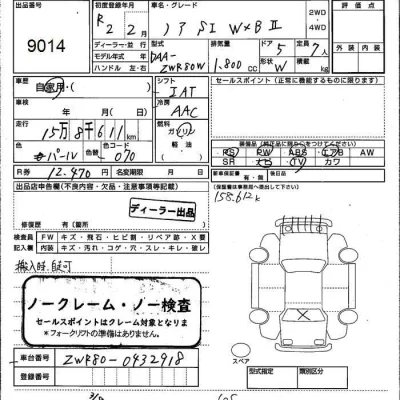 出品番号
9014
初度登録年月
R2年2月
並行
モデル年式 年
ハンドル 左・右
車名・グレード
ノア SI W×B II
DAA-
ZWR80W
排気量
1.800 cc
ドア
5
形状
W
定員
7人
積載量
kg
2WD
4WD
評価点
外装
内装
車歴
自家用・( )
車検
年 月( 日)
走行
15万8千611km
色
パール
色替
色コード
070
R券
12.470円
シフト
IAT
冷房
AAC
燃料
ガソリン
軽油
( )
セールスポイント (正常に機能するものに限ります)
装備品 (純正品に限り○をつけてください)
PS PW ABS エアB AW
SR ナビ TV カワ
新車保証書 有 無
出品店申告欄(不良内容・欠品・注意事項等記載)
ディーラー出品
修復歴 有(箇所 )
検査員記入欄
FW キズ・飛石・ヒビ割・リペア跡・X要
内装 キズ・汚れ・コゲ・穴・スレ・キレ・破レ
158.612k
搬入時、自走可
ノークレーム・ノー検査
セールスポイントはクレーム対象となりま
*フォークリフトの準備はありません。
車台番号
ZWR80-0432918
登録番号
スペア
型式指定
類別区分